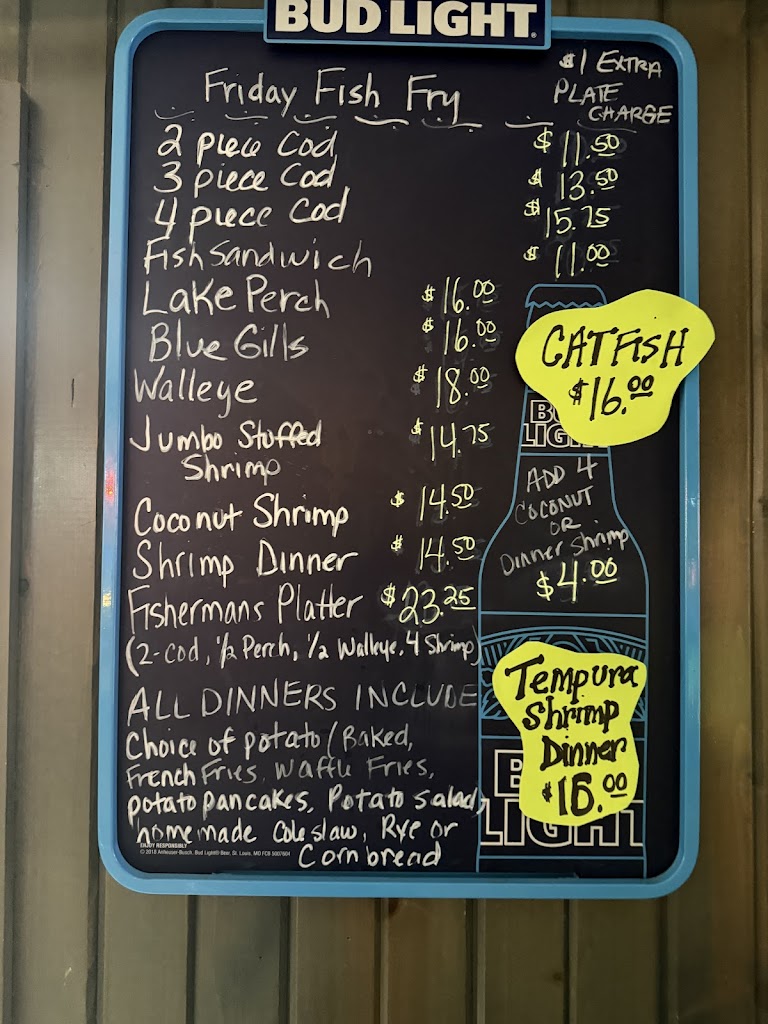 BUD LIGHT
Friday Fish Fry
$1 EXTRA
PLATE
CHARGE
2 piece Cod $11.50
3 piece Cod $13.50
4 piece Cod $15.75
Fish Sandwich $11.00
Lake Perch $16.00
Blue Gills $16.00
Walleye $18.00
Jumbo Stuffed $14.75
Shrimp
Coconut Shrimp $14.50
Shrimp Dinner $14.50
Fishermans Platter $23.25
(2-Cod, 1/2 Perch, 1/2 Walleye, 4 Shrimp)
CATFISH
$16.00
ADD 4
COCONUT
OR
Dinner Shrimp
$4.00
Tempura
Shrimp
Dinner
ALL DINNERS INCLUDE
Choice of potato (Baked,
French Fries, Waffle Fries,
potato pancakes, Potato salad,
homemade Coleslaw, Rye or
Corn bread
LIGHT
ENJOY RESPONSIBLY
© 2018 Anheuser-Busch, Bud Light® Beer, St. Louis, MO